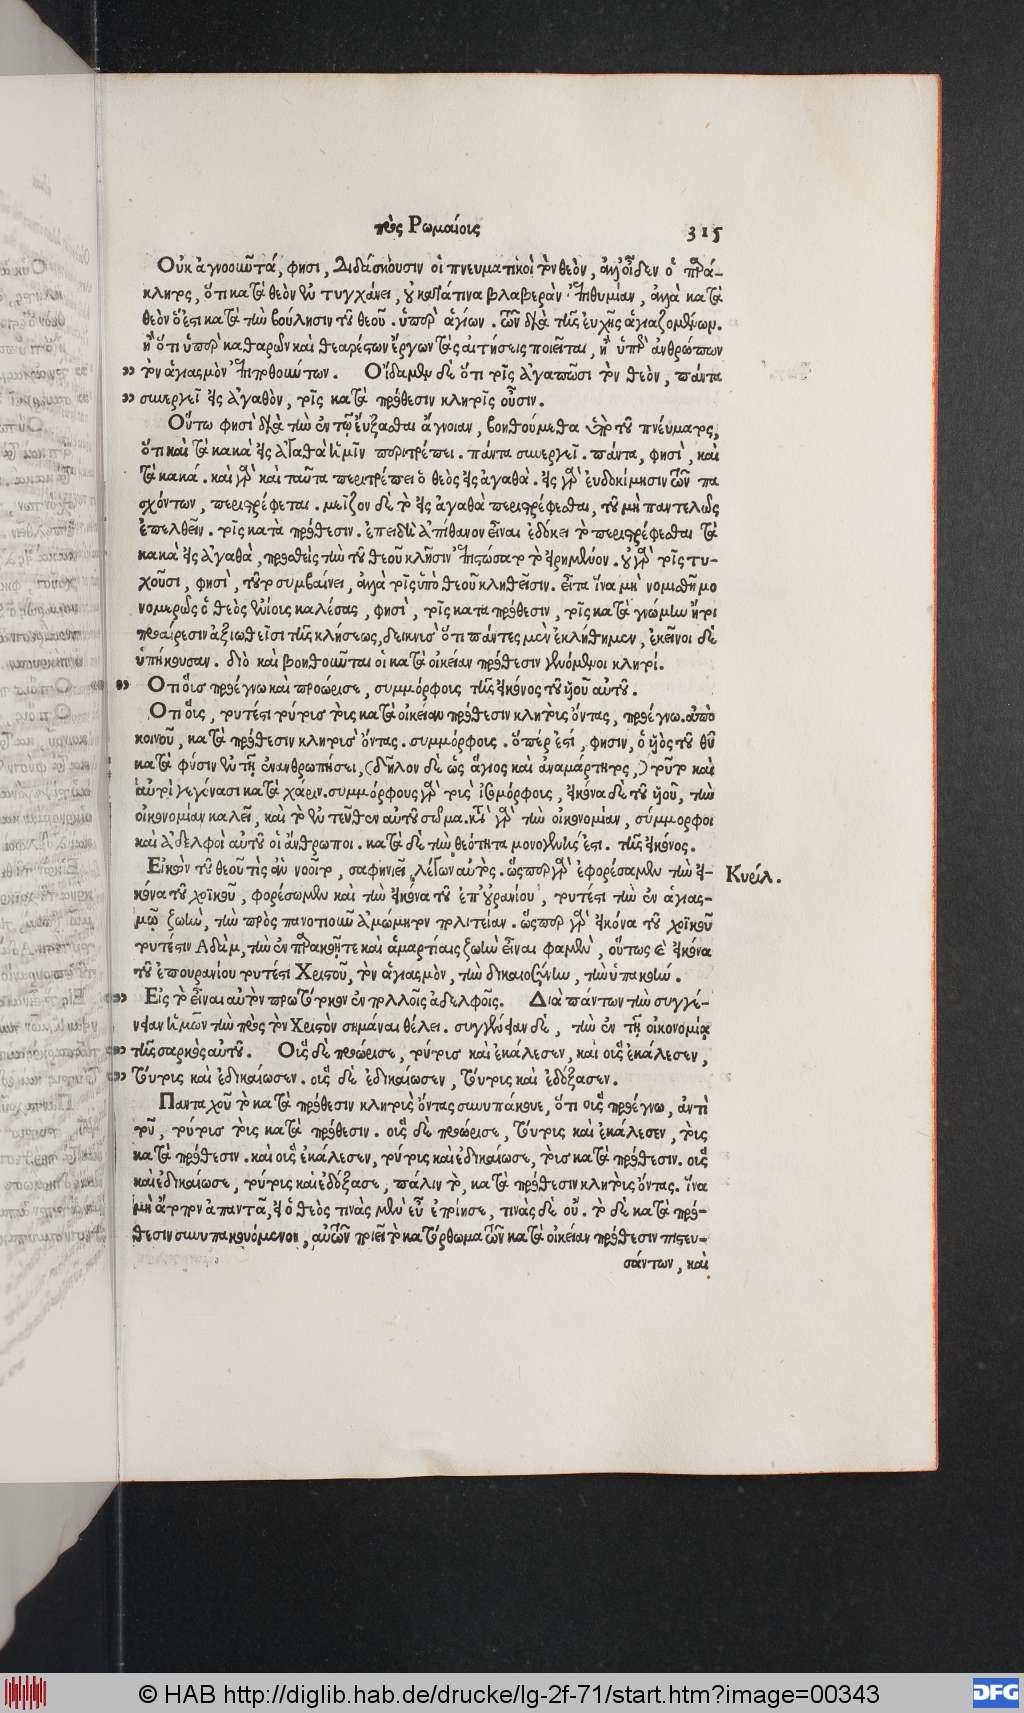 πρὸς Ῥωμαίοις 315
Οὐκ ἀγνοοῦντά, φησι, διδάσκουσιν οἱ πνευματικοὶ τὸν θεὸν, ἀλλ' οἶδεν ὁ παρά-
κλητος, ὅτι κατὰ θεὸν ἐντυγχάνει, οὐ κατά τινα βλαβερὰν ἐπιθυμίαν, ἀλλὰ κατὰ
θεὸν ὅ ἐστι κατὰ τὴν βούλησιν τοῦ θεοῦ. ὑπὲρ ἁγίων. τῶν διὰ τῆς εὐχῆς ἁγιαζομένων.
ἢ ὅτι ὑπὲρ καθαρῶν καὶ θεαρέστων ἔργων τὰς αἰτήσεις ποιεῖται, ἢ ὑπὲρ ἀνθρώπων
τὸν ἁγιασμὸν ἐπιποθούντων. Οἴδαμεν δὲ ὅτι τοῖς ἀγαπῶσι τὸν θεὸν, πάντα
συνεργεῖ εἰς ἀγαθὸν, τοῖς κατὰ πρόθεσιν κλητοῖς οὖσιν.
Οὕτω φησὶ διὰ τὴν ἐν τῷ εὔξασθαι ἄγνοιαν, βοηθούμεθα ὑπὸ τοῦ πνεύματος,
ὅτι καὶ τὰ κακὰ εἰς ἀγαθὰ ἡμῖν περιτρέπει. πάντα συνεργεῖ. πάντα, φησὶ, καὶ
τὰ κακά. καὶ γὰρ καὶ ταῦτα περιτρέπει ὁ θεὸς εἰς ἀγαθά. εἰς γὰρ εὐδοκίμησιν τῶν πα
σχόντων, περιστρέφεται. μεῖζον δὲ τὸ εἰς ἀγαθὰ περιστρέφεσθαι, τοῦ μὴ παντελῶς
ἐπελθεῖν. τοῖς κατὰ πρόθεσιν. ἐπειδὴ ἀπίθανον εἶναι ἐδόκει τὸ περιστρέφεσθαι τὰ
κακὰ εἰς ἀγαθὰ, προσθεὶς τὴν τοῦ θεοῦ κλῆσιν ἐπιστώσατο τὸ εἰρημένον. οὐ γὰρ τοῖς τυ-
χοῦσι, φησὶ, τοῦτο συμβαίνει, ἀλλὰ τοῖς ὑπὸ θεοῦ κληθεῖσιν. εἶτα ἵνα μὴ νομισθῇ μο
νομερῶς ὁ θεὸς ἐνίοις καλέσας, φησὶ, τοῖς κατὰ πρόθεσιν, τοῖς κατὰ γνώμην ἤτοι
προαίρεσιν ἀξιωθεῖσι τῆς κλήσεως, δεικνὺς ὅτι πάντες μὲν ἐκλήθημεν, ἐκεῖνοι δὲ
ὑπήκουσαν. διὸ καὶ βοηθοῦνται οἱ κατὰ οἰκείαν πρόθεσιν γενόμενοι κλητοί.
Ὅτι οἷς προέγνω καὶ προώρισε, συμμόρφοις τῆς εἰκόνος τοῦ υἱοῦ αὐτοῦ.
Ὅτι οἷς, τουτέστι τούτοις τοῖς κατὰ οἰκείαν πρόθεσιν κλητοῖς ὄντας, προέγνω. ἀπὸ
κοινοῦ, κατὰ πρόθεσιν κλητοῖς ὄντας. συμμόρφοις. ὅπέρ ἐστί, φησιν, ὁ υἱὸς τοῦ θεοῦ
κατὰ φύσιν ἐν τῇ ἐνανθρωπήσει, (δῆλον δὲ ὡς ἅγιος καὶ ἀναμάρτητος,) τοῦτο καὶ
αὐτοὶ γεγόνασι κατὰ χάριν. συμμόρφους γὰρ τοῖς ἰσομόρφοις, εἰκόνα δὲ τοῦ υἱοῦ, τὴν
οἰκονομίαν καλεῖ, καὶ τὸ ἐντεῦθεν αὐτοῦ σῶμα. κατὰ γὰρ τὴν οἰκονομίαν, σύμμορφοι
καὶ ἀδελφοὶ αὐτοῦ οἱ ἄνθρωποι. κατὰ δὲ τὴν θεότητα μονογενής ἐστι. τῆς εἰκόνος.
Εἰκὼν τοῦ θεοῦ τίς ἂν νοοῖτο, σαφηνιεῖ λέγων αὐτός. ὥσπερ γὰρ ἐφορέσαμεν τὴν εἰ-
κόνα τοῦ χοϊκοῦ, φορέσωμεν καὶ τὴν εἰκόνα τοῦ ἐπουρανίου, τουτέστι τὴν ἐν ἁγιασ-
μῷ ζωὴν, τὴν πρὸς πᾶν ὁτιοῦν ἀμώμητον πολιτείαν. ὥσπερ γὰρ εἰκόνα τοῦ χοϊκοῦ
τουτέστιν Ἀδὰμ, τὴν ἐν παρακοῇ τε καὶ ἁμαρτίαις ζωὴν εἶναι φαμὲν, οὕτως εἰκόνα
τοῦ ἐπουρανίου τουτέστι Χριστοῦ, τὸν ἁγιασμὸν, τὴν δικαιοσύνην, τὴν ὑπακοήν.
Κυρίλ.
Εἰς τὸ εἶναι αὐτὸν πρωτότοκον ἐν πολλοῖς ἀδελφοῖς. Διὰ πάντων τὴν συγγέ-
νειαν ἡμῶν τὴν πρὸς τὸν Χριστὸν σημᾶναι θέλει. συγγένειαν δὲ, τὴν ἐν τῇ οἰκονομίᾳ
τῆς σαρκὸς αὐτοῦ. Οἷς δὲ προώρισε, τούτοις καὶ ἐκάλεσεν, καὶ οἷς ἐκάλεσεν,
τούτοις καὶ ἐδικαίωσεν. οἷς δὲ ἐδικαίωσεν, τούτοις καὶ ἐδόξασεν.
Πανταχοῦ τὸ κατὰ πρόθεσιν κλητοῖς ὄντας συνυπάκουε, ὅτι οἷς προέγνω, ἀντὶ
τοῦ, τούτοις τοῖς κατὰ πρόθεσιν. οἷς δὲ προώρισε, τούτοις καὶ ἐκάλεσεν, τοῖς
κατὰ πρόθεσιν. καὶ οἷς ἐκάλεσεν, τούτοις καὶ ἐδικαίωσε, τοῖς κατὰ πρόθεσιν. οἷς
καὶ ἐδικαίωσε, τούτοις καὶ ἐδόξασε, πάλιν τὸ, κατὰ πρόθεσιν κλητοῖς ὄντας. ἵνα
μὴ ἄτοπον ἀπαντᾷ, εἰ ὁ θεὸς τινὰς μὲν εὖ ἐποίησε, τινὰς δὲ οὔ. τὸ δὲ κατὰ πρό-
θεσιν συνυπακουόμενον, αὐτῶν ποιεῖ τὸ κατόρθωμα τῶν κατὰ οἰκείαν πρόθεσιν πιστευ-
σάντων, καὶ
© HAB http://diglib.hab.de/drucke/lg-2f-71/start.htm?image=00343
DFG